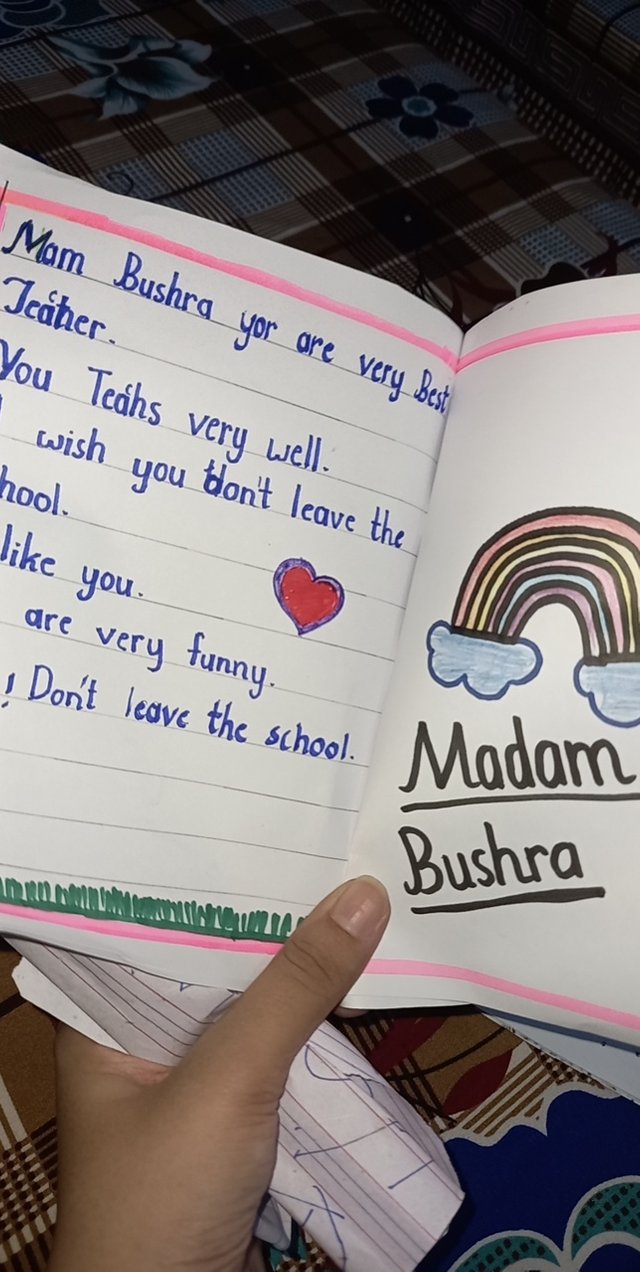 Mam Bushra yor are very Best
Teather.
You Teahs very well.
wish you don't leave the
hool.
like you.
are very funny.
! Don't leave the school.
Madam
Bushra